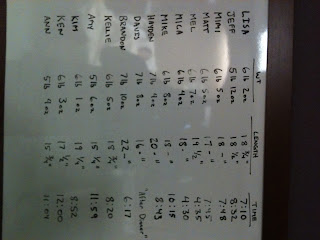 WT LENGTH TIME
LISA 6 lb 2 oz 18 3/4" 7:10
JEFF 5 lb 12 oz 18 1/2" 8:32
MIMI 6 lb 5 oz 18 -" 7:48
MATT 6 lb 5 oz 17 -"
MEL 6 lb 7 oz 19 1/2 4:35
MICA 6 lb 18 -" 4:30
MIKE 6 lb 8 oz 18 -" 10:15
HAYDEN 7 lb 20 -" 8:43
DAVES 7 lb 8 oz 16 -"
BRANDON 7 lb 10 oz 22 -" 6:17
KELLIE 6 lb 5 oz 15 3/4" 8:20
AMY 5 lb 6 oz 15 1/4" 11:59
KIM 6 lb 1 oz 19 1/4 8:52
KEN 6 lb 3 oz 17 1/2" 12:00
ANN 5 lb 15 3/4" 11:04